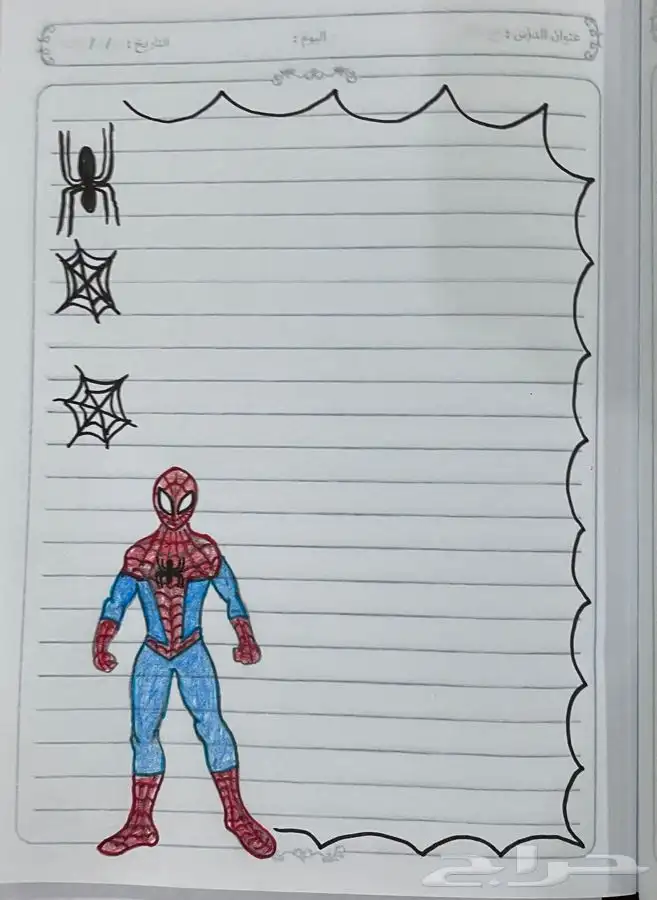 عنوان الدرس : اليوم : التاريخ : / /
حراج